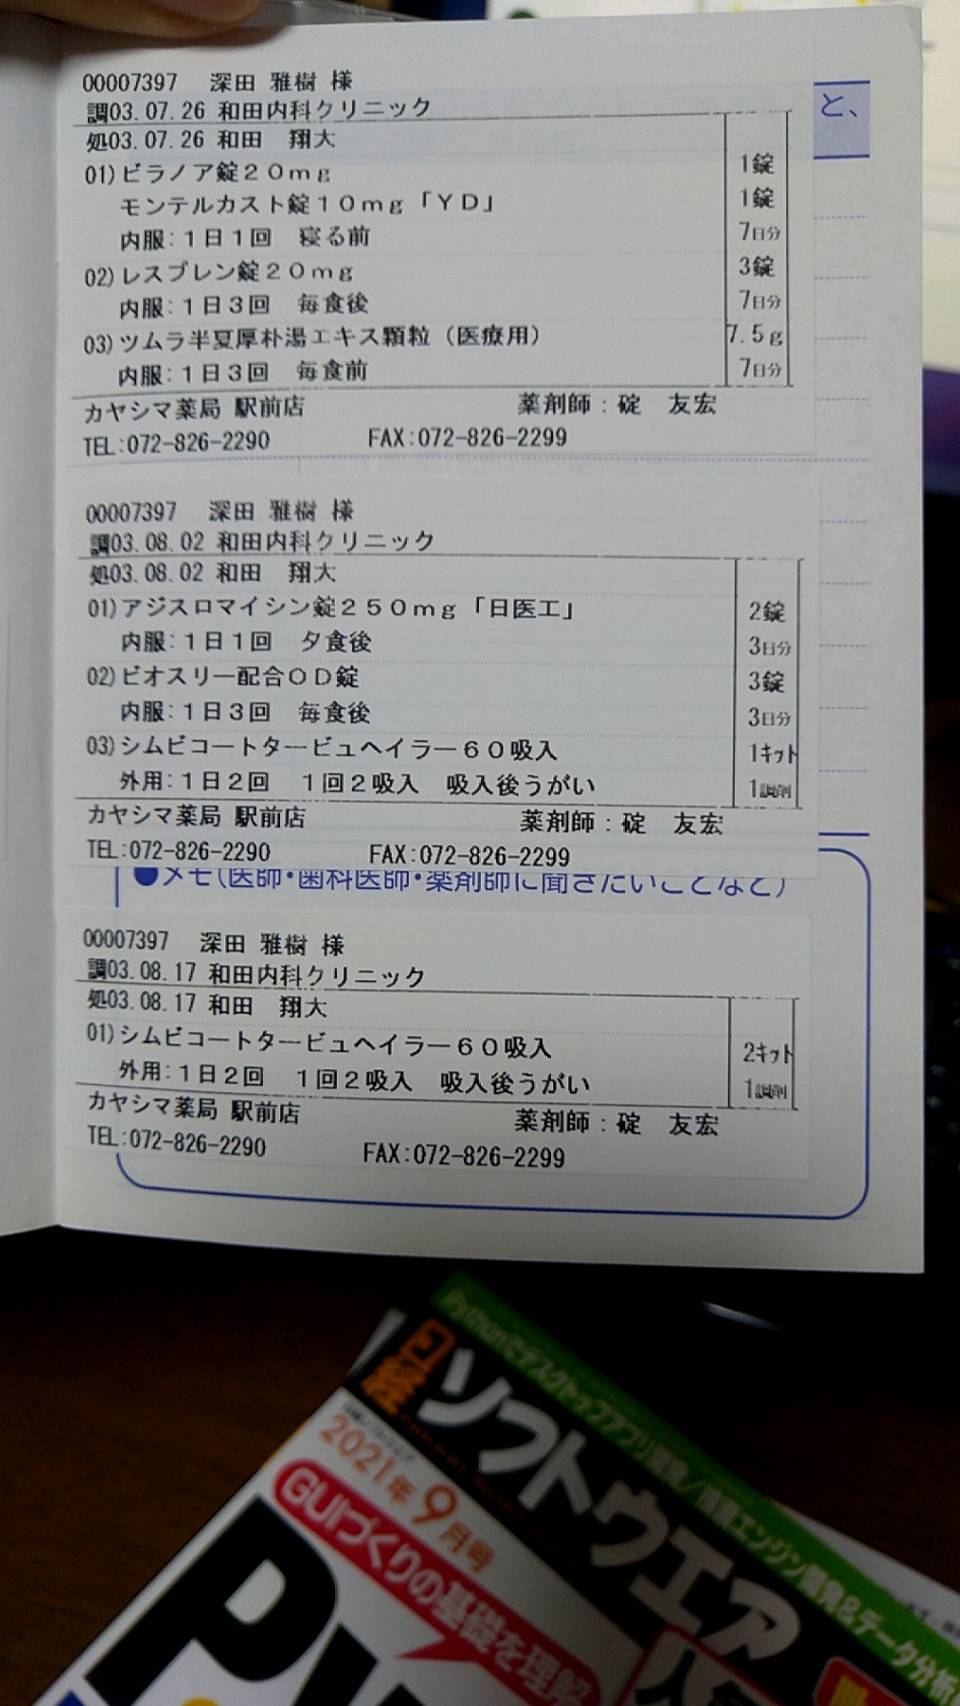 と、
00007397 深田 雅樹 様
調03.07.26 和田内科クリニック
処03.07.26 和田 翔大
01)ビラノア錠20mg 1錠
モンテルカスト錠10mg「YD」 1錠
内服:1日1回 寝る前 7日分
02)レスプレン錠20mg 3錠
内服:1日3回 毎食後 7日分
03)ツムラ半夏厚朴湯エキス顆粒(医療用) 7.5g
内服:1日3回 毎食前 7日分
カヤシマ薬局 駅前店 薬剤師:碇 友宏
TEL:072-826-2290 FAX:072-826-2299
00007397 深田 雅樹 様
調03.08.02 和田内科クリニック
処03.08.02 和田 翔大
01)アジスロマイシン錠250mg「日医工」 2錠
内服:1日1回 夕食後 3日分
02)ビオスリー配合OD錠 3錠
内服:1日3回 毎食後 3日分
03)シムビコートタービュヘイラー60吸入 1キット
外用:1日2回 1回2吸入 吸入後うがい 1調剤
カヤシマ薬局 駅前店 薬剤師:碇 友宏
TEL:072-826-2290 FAX:072-826-2299
●メモ(医師・歯科医師・薬剤師に聞きたいことなど)
00007397 深田 雅樹 様
調03.08.17 和田内科クリニック
処03.08.17 和田 翔大
01)シムビコートタービュヘイラー60吸入 2キット
外用:1日2回 1回2吸入 吸入後うがい 1調剤
カヤシマ薬局 駅前店 薬剤師:碇 友宏
TEL:072-826-2290 FAX:072-826-2299
Pythonでデスクトップアプリ開発/
エンジン開発&データ分析
日経ソフトウエア
2021年9月号
GUIづくりの基礎を理解